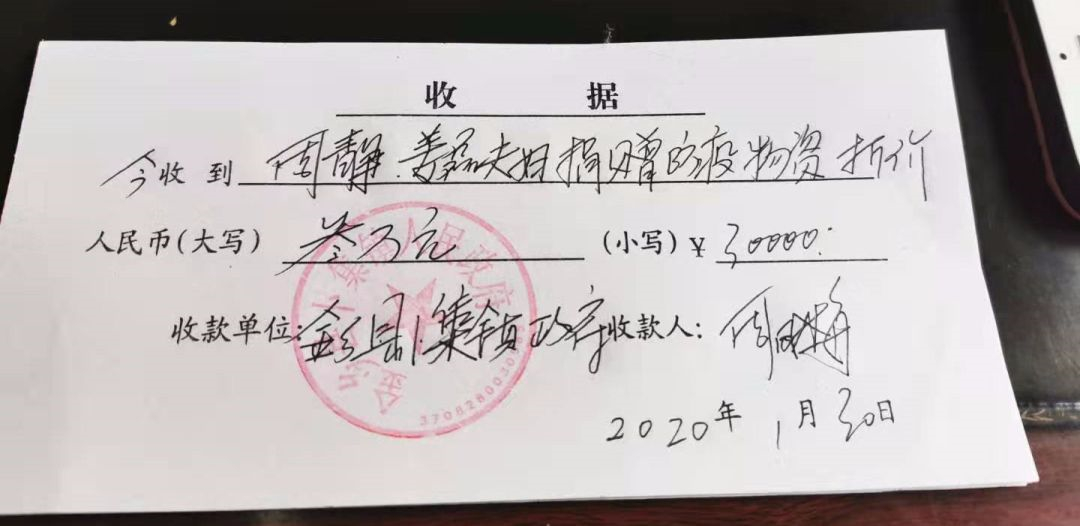 收 据
今收到 周静.姜磊夫妇捐赠防疫物资折价
人民币(大写) 叁万元 (小写)¥ 30000.
收款单位: 金乡县 集镇政府 收款人: 周
2020年 1月 30日
集镇人民政府